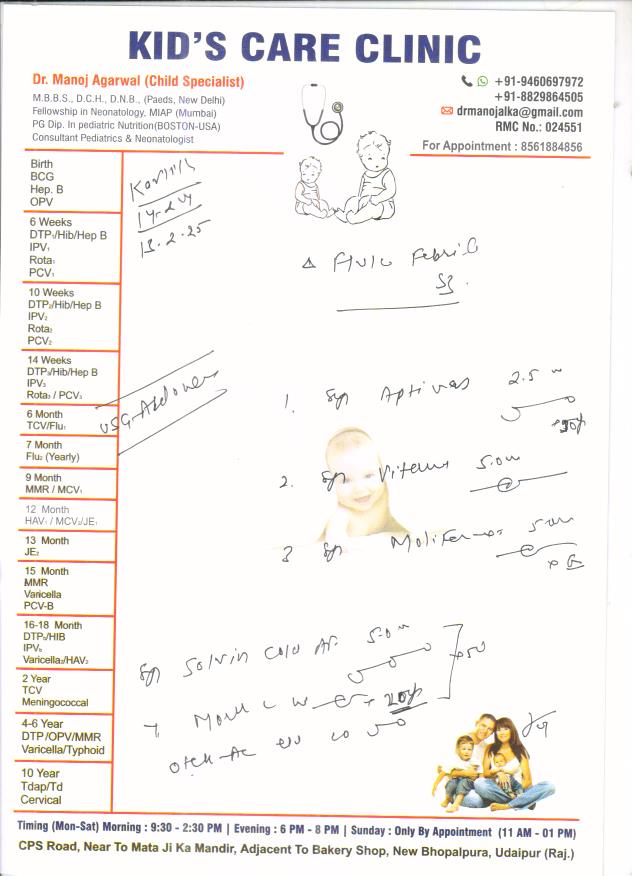 KID'S CARE CLINIC
Dr. Manoj Agarwal (Child Specialist)
M.B.B.S., D.C.H., D.N.B., (Paeds, New Delhi)
Fellowship in Neonatology, MIAP (Mumbai)
PG Dip. In pediatric Nutrition(BOSTON-USA)
Consultant Pediatrics & Neonatologist
+91-9460697972
+91-8829864505
drmanojalka@gmail.com
RMC No.: 024551
For Appointment : 8561884856
Birth
BCG
Hep. B
OPV
6 Weeks
DTP₁/Hib/Hep B
IPV₁
Rota₁
PCV₁
10 Weeks
DTP₂/Hib/Hep B
IPV₂
Rota₂
PCV₂
14 Weeks
DTP₃/Hib/Hep B
IPV₃
Rota₃ / PCV₃
6 Month
TCV/Flu₁
7 Month
Flu₂ (Yearly)
9 Month
MMR / MCV₁
12 Month
HAV₁ / MCV₂/JE₁
13 Month
JE₂
15 Month
MMR
Varicella
PCV-B
16-18 Month
DTP₅/HIB
IPV₅
Varicella₂/HAV₂
2 Year
TCV
Meningococcal
4-6 Year
DTP/OPV/MMR
Varicella/Typhoid
10 Year
Tdap/Td
Cervical
13.2.25
Δ Febril
USG-Abdomen
1. Syp Aptivas 2.5 m
2. Syp 5.0m
3 Syp 5m
Syp Solvin Cold AF 5.0m
Timing (Mon-Sat) Morning : 9:30 - 2:30 PM | Evening : 6 PM - 8 PM | Sunday : Only By Appointment (11 AM - 01 PM)
CPS Road, Near To Mata Ji Ka Mandir, Adjacent To Bakery Shop, New Bhopalpura, Udaipur (Raj.)